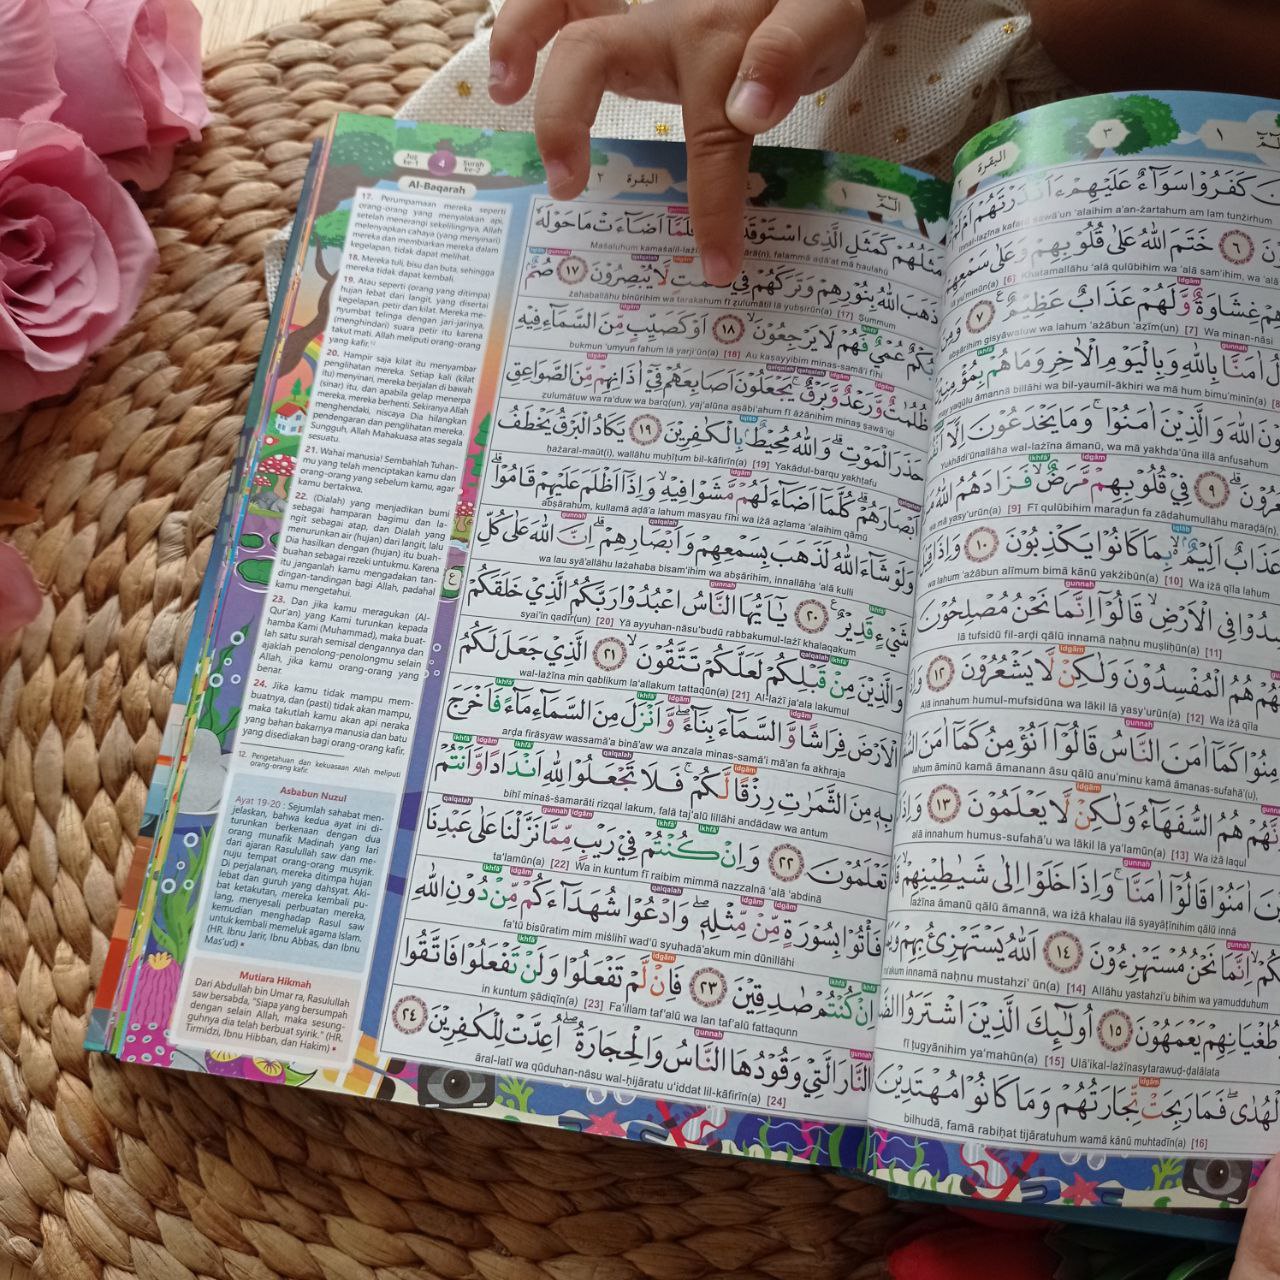 Juz
ke-1
4
Surah
ke-2
Al-Baqarah
17. Perumpamaan mereka seperti
orang-orang yang menyalakan api,
setelah menerangi sekelilingnya, Allah
melenyapkan cahaya (yang menyinari)
mereka dan membiarkan mereka dalam
kegelapan, tidak dapat melihat.
18. Mereka tuli, bisu dan buta, sehingga
mereka tidak dapat kembali.
19. Atau seperti (orang yang ditimpa)
hujan lebat dari langit, yang disertai
kegelapan, petir dan kilat. Mereka me-
nyumbat telinga dengan jari-jarinya,
(menghindari) suara petir itu karena
takut mati. Allah meliputi orang-orang
yang kafir.¹²
20. Hampir saja kilat itu menyambar
penglihatan mereka. Setiap kali (kilat
itu) menyinari, mereka berjalan di bawah
(sinar) itu, dan apabila gelap menerpa
mereka, mereka berhenti. Sekiranya Allah
menghendaki, niscaya Dia hilangkan
pendengaran dan penglihatan mereka.
Sungguh, Allah Mahakuasa atas segala
sesuatu.
21. Wahai manusia! Sembahlah Tuhan-
mu yang telah menciptakan kamu dan
orang-orang yang sebelum kamu, agar
kamu bertakwa.
22. (Dialah) yang menjadikan bumi
sebagai hamparan bagimu dan la-
ngit sebagai atap, dan Dialah yang
menurunkan air (hujan) dari langit, lalu
Dia hasilkan dengan (hujan) itu buah-
buahan sebagai rezeki untukmu. Karena
itu janganlah kamu mengadakan tan-
dingan-tandingan bagi Allah, padahal
kamu mengetahui.
23. Dan jika kamu meragukan (Al-
Qur'an) yang Kami turunkan kepada
hamba Kami (Muhammad), maka buat-
lah satu surah semisal dengannya dan
ajaklah penolong-penolongmu selain
Allah, jika kamu orang-orang yang
benar.
24. Jika kamu tidak mampu mem-
buatnya, dan (pasti) tidak akan mampu,
maka takutlah kamu akan api neraka
yang bahan bakarnya manusia dan batu
yang disediakan bagi orang-orang kafir.
12. Pengetahuan dan kekuasaan Allah meliputi
orang-orang kafir.
Asbabun Nuzul
Ayat 19-20 : Sejumlah sahabat men-
jelaskan, bahwa kedua ayat ini di-
turunkan berkenaan dengan dua
orang munafik Madinah yang lari
dari ajaran Rasulullah saw dan me-
nuju tempat orang-orang musyrik.
Di perjalanan, mereka ditimpa hujan
lebat dan guruh yang dahsyat. Aki-
bat ketakutan, mereka kembali pu-
lang, menyesali perbuatan mereka,
kemudian menghadap Rasul saw
untuk kembali memeluk agama Islam.
(HR. Ibnu Jarir, Ibnu Abbas, dan Ibnu
Mas'ud)
Mutiara Hikmah
Dari Abdullah bin Umar ra, Rasulullah
saw bersabda, "Siapa yang bersumpah
dengan selain Allah, maka sesung-
guhnya dia telah berbuat syirik." (HR.
Tirmidzi, Ibnu Hibban, dan Hakim)
البقرة ٢
الٓمّٓ ١
مَثَلُهُمْ كَمَثَلِ الَّذِى اسْتَوْقَدَ فَلَمَّآ اَضَاۤءَتْ مَا حَوْلَهٗ
Maṡaluhum kamaṡalil-laż falammā aḍā'at mā ḥaulahū
ذَهَبَ اللّٰهُ بِنُوْرِهِمْ وَتَرَكَهُمْ فِيْ لَّا يُبْصِرُوْنَ ١٧ صُمٌّۢ
żahaballāhu binūrihim wa tarakahum fī ẓulumātil lā yubṣirūn(a) [17] Ṣummum
بُكْمٌ عُمْيٌ فَهُمْ لَا يَرْجِعُوْنَۙ ١٨ اَوْ كَصَيِّبٍ مِّنَ السَّمَاۤءِ فِيْهِ
bukmun 'umyun fahum lā yarji'ūn(a) [18] Au kaṣayyibim minas-samā'i fīhi
ظُلُمٰتٌ وَّرَعْدٌ وَّبَرْقٌۚ يَجْعَلُوْنَ اَصَابِعَهُمْ فِيْٓ اٰذَانِهِمْ مِّنَ الصَّوَاعِقِ
ẓulumātuw wa ra'duw wa barq(un), yaj'alūna aṣābi'ahum fī āżānihim minaṣ ṣawā'iqi
حَذَرَ الْمَوْتِۗ وَاللّٰهُ مُحِيْطٌۢ بِالْكٰفِرِيْنَ ١٩ يَكَادُ الْبَرْقُ يَخْطَفُ
ḥażaral-maūt(i), wallāhu muḥīṭum bil-kāfirīn(a) [19] Yakādul-barqu yakhṭafu
اَبْصَارَهُمْۗ كُلَّمَآ اَضَاۤءَ لَهُمْ مَّشَوْا فِيْهِۙ وَاِذَآ اَظْلَمَ عَلَيْهِمْ قَامُوْاۗ
abṣārahum, kullamā aḍā'a lahum masyau fīhi wa iżā aẓlama 'alaihim qāmū
وَلَوْ شَاۤءَ اللّٰهُ لَذَهَبَ بِسَمْعِهِمْ وَاَبْصَارِهِمْۗ اِنَّ اللّٰهَ عَلٰى كُلِّ
wa lau syā'allāhu lażahaba bisam'ihim wa abṣārihim, innallāha 'alā kulli
شَيْءٍ قَدِيْرٌࣖ ٢٠ يٰٓاَيُّهَا النَّاسُ اعْبُدُوْا رَبَّكُمُ الَّذِيْ خَلَقَكُمْ
syai'in qadīr(un) [20] Yā ayyuhan-nāsu'budū rabbakumul-lażī khalaqakum
وَالَّذِيْنَ مِنْ قَبْلِكُمْ لَعَلَّكُمْ تَتَّقُوْنَۙ ٢١ الَّذِيْ جَعَلَ لَكُمُ
wal-lażīna min qablikum la'allakum tattaqūn(a) [21] Al-lażī ja'ala lakumul
الْاَرْضَ فِرَاشًا وَّالسَّمَاۤءَ بِنَاۤءًۖ وَّاَنْزَلَ مِنَ السَّمَاۤءِ مَاۤءً فَاَخْرَجَ
arḍa firāsyaw wassamā'a binā'aw wa anzala minas-samā'i mā'an fa akhraja
بِهٖ مِنَ الثَّمَرٰتِ رِزْقًا لَّكُمْۚ فَلَا تَجْعَلُوْا لِلّٰهِ اَنْدَادًا وَّاَنْتُمْ
bihī minaṡ-ṡamarāti rizqal lakum, falā taj'alū lillāhi andādaw wa antum
تَعْلَمُوْنَ ٢٢ وَاِنْ كُنْتُمْ فِيْ رَيْبٍ مِّمَّا نَزَّلْنَا عَلٰى عَبْدِنَا
ta'lamūn(a) [22] Wa in kuntum fī raibim mimmā nazzalnā 'alā 'abdinā
فَأْتُوْا بِسُوْرَةٍ مِّنْ مِّثْلِهٖۖ وَادْعُوْا شُهَدَاۤءَكُمْ مِّنْ دُوْنِ اللّٰهِ
fa'tū bisūratim mim miṡlihī wad'ū syuhadā'akum min dūnillāhi
اِنْ كُنْتُمْ صٰدِقِيْنَ ٢٣ فَاِنْ لَّمْ تَفْعَلُوْا وَلَنْ تَفْعَلُوْا فَاتَّقُوا
in kuntum ṣādiqīn(a) [23] Fa'illam taf'alū wa lan taf'alū fattaqunn
النَّارَ الَّتِيْ وَقُوْدُهَا النَّاسُ وَالْحِجَارَةُۖ اُعِدَّتْ لِلْكٰفِرِيْنَ ٢٤
āral-latī wa qūduhan-nāsu wal-ḥijāratu u'iddat lil-kāfirīn(a) [24]
البقرة ٢
٣
١
كَفَرُوْا سَوَاۤءٌ عَلَيْهِمْ ءَاَنْذَرْتَهُمْ اَمْ لَمْ
innal-lażīna kafarū sawā'un 'alaihim a'an-żartahum am lam tunżirhum
٦ خَتَمَ اللّٰهُ عَلٰى قُلُوْبِهِمْ وَعَلٰى سَمْعِهِمْ
lā yu'minūn(a) [6] Khatamallāhu 'alā qulūbihim wa 'alā sam'ihim, wa 'alā
غِشَاوَةٌ وَّلَهُمْ عَذَابٌ عَظِيْمٌࣖ ٧ وَمِنَ
abṣārihim gisyāwatuw wa lahum 'ażābun 'aẓīm(un) [7] Wa minan-nāsi
اٰمَنَّا بِاللّٰهِ وَبِالْيَوْمِ الْاٰخِرِ وَمَا هُمْ بِمُؤْمِنِيْنَ
may yaqūlu āmannā billāhi wa bil-yaumil-ākhiri wa mā hum bimu'minīn(a) [8
اللّٰهَ وَالَّذِيْنَ اٰمَنُوْاۚ وَمَا يَخْدَعُوْنَ اِلَّآ
Yukhādi'ūnallāha wal-lażīna āmanū, wa mā yakhda'ūna illā anfusahum
٩ فِيْ قُلُوْبِهِمْ مَّرَضٌۙ فَزَادَهُمُ اللّٰهُ
wa mā yasy'urūn(a) [9] Fī qulūbihim maraḍun fa zādahumullāhu maraḍā(n),
عَذَابٌ اَلِيْمٌۢ بِمَا كَانُوْا يَكْذِبُوْنَ ١٠ وَاِذَا قِيْلَ
wa lahum 'ażābun alīmum bimā kānū yakżibūn(a) [10] Wa iżā qīla lahum
فِى الْاَرْضِۙ قَالُوْٓا اِنَّمَا نَحْنُ مُصْلِحُوْنَ
lā tufsidū fil-arḍi qālū innamā naḥnu muṣliḥūn(a) [11]
هُمُ الْمُفْسِدُوْنَ وَلٰكِنْ لَّا يَشْعُرُوْنَ ١٢
Alā innahum humul-mufsidūna wa lākil lā yasy'urūn(a) [12] Wa iżā qīla
كَمَآ اٰمَنَ النَّاسُ قَالُوْٓا اَنُؤْمِنُ كَمَآ اٰمَنَ
lahum āminū kamā āmanann āsu qālū anu'minu kamā āmanas-sufahā'(u),
هُمُ السُّفَهَاۤءُ وَلٰكِنْ لَّا يَعْلَمُوْنَ ١٣
alā innahum humus-sufahā'u wa lākil lā ya'lamūn(a) [13] Wa iżā laqul
اٰمَنُوْا قَالُوْٓا اٰمَنَّاۚ وَاِذَا خَلَوْا اِلٰى شَيٰطِيْنِهِمْۙ
lażīna āmanū qālū āmannā, wa iżā khalau ilā syayāṭīnihim qālū innā
اِنَّمَا نَحْنُ مُسْتَهْزِءُوْنَ ١٤ اَللّٰهُ يَسْتَهْزِئُ بِهِمْ
innamā naḥnu mustahzi' ūn(a) [14] Allāhu yastahzi'u bihim wa yamudduhum
طُغْيَانِهِمْ يَعْمَهُوْنَ ١٥ اُولٰۤىِٕكَ الَّذِيْنَ اشْتَرَوُا
fī ṭugyānihim ya'mahūn(a) [15] Ulā'ikal-lażīnasytarawuḍ-ḍalālata
بِالْهُدٰىۖ فَمَا رَبِحَتْ تِّجَارَتُهُمْ وَمَا كَانُوْا مُهْتَدِيْنَ
bilhudā, famā rabiḥat tijāratuhum wamā kānū muhtadīn(a) [16]